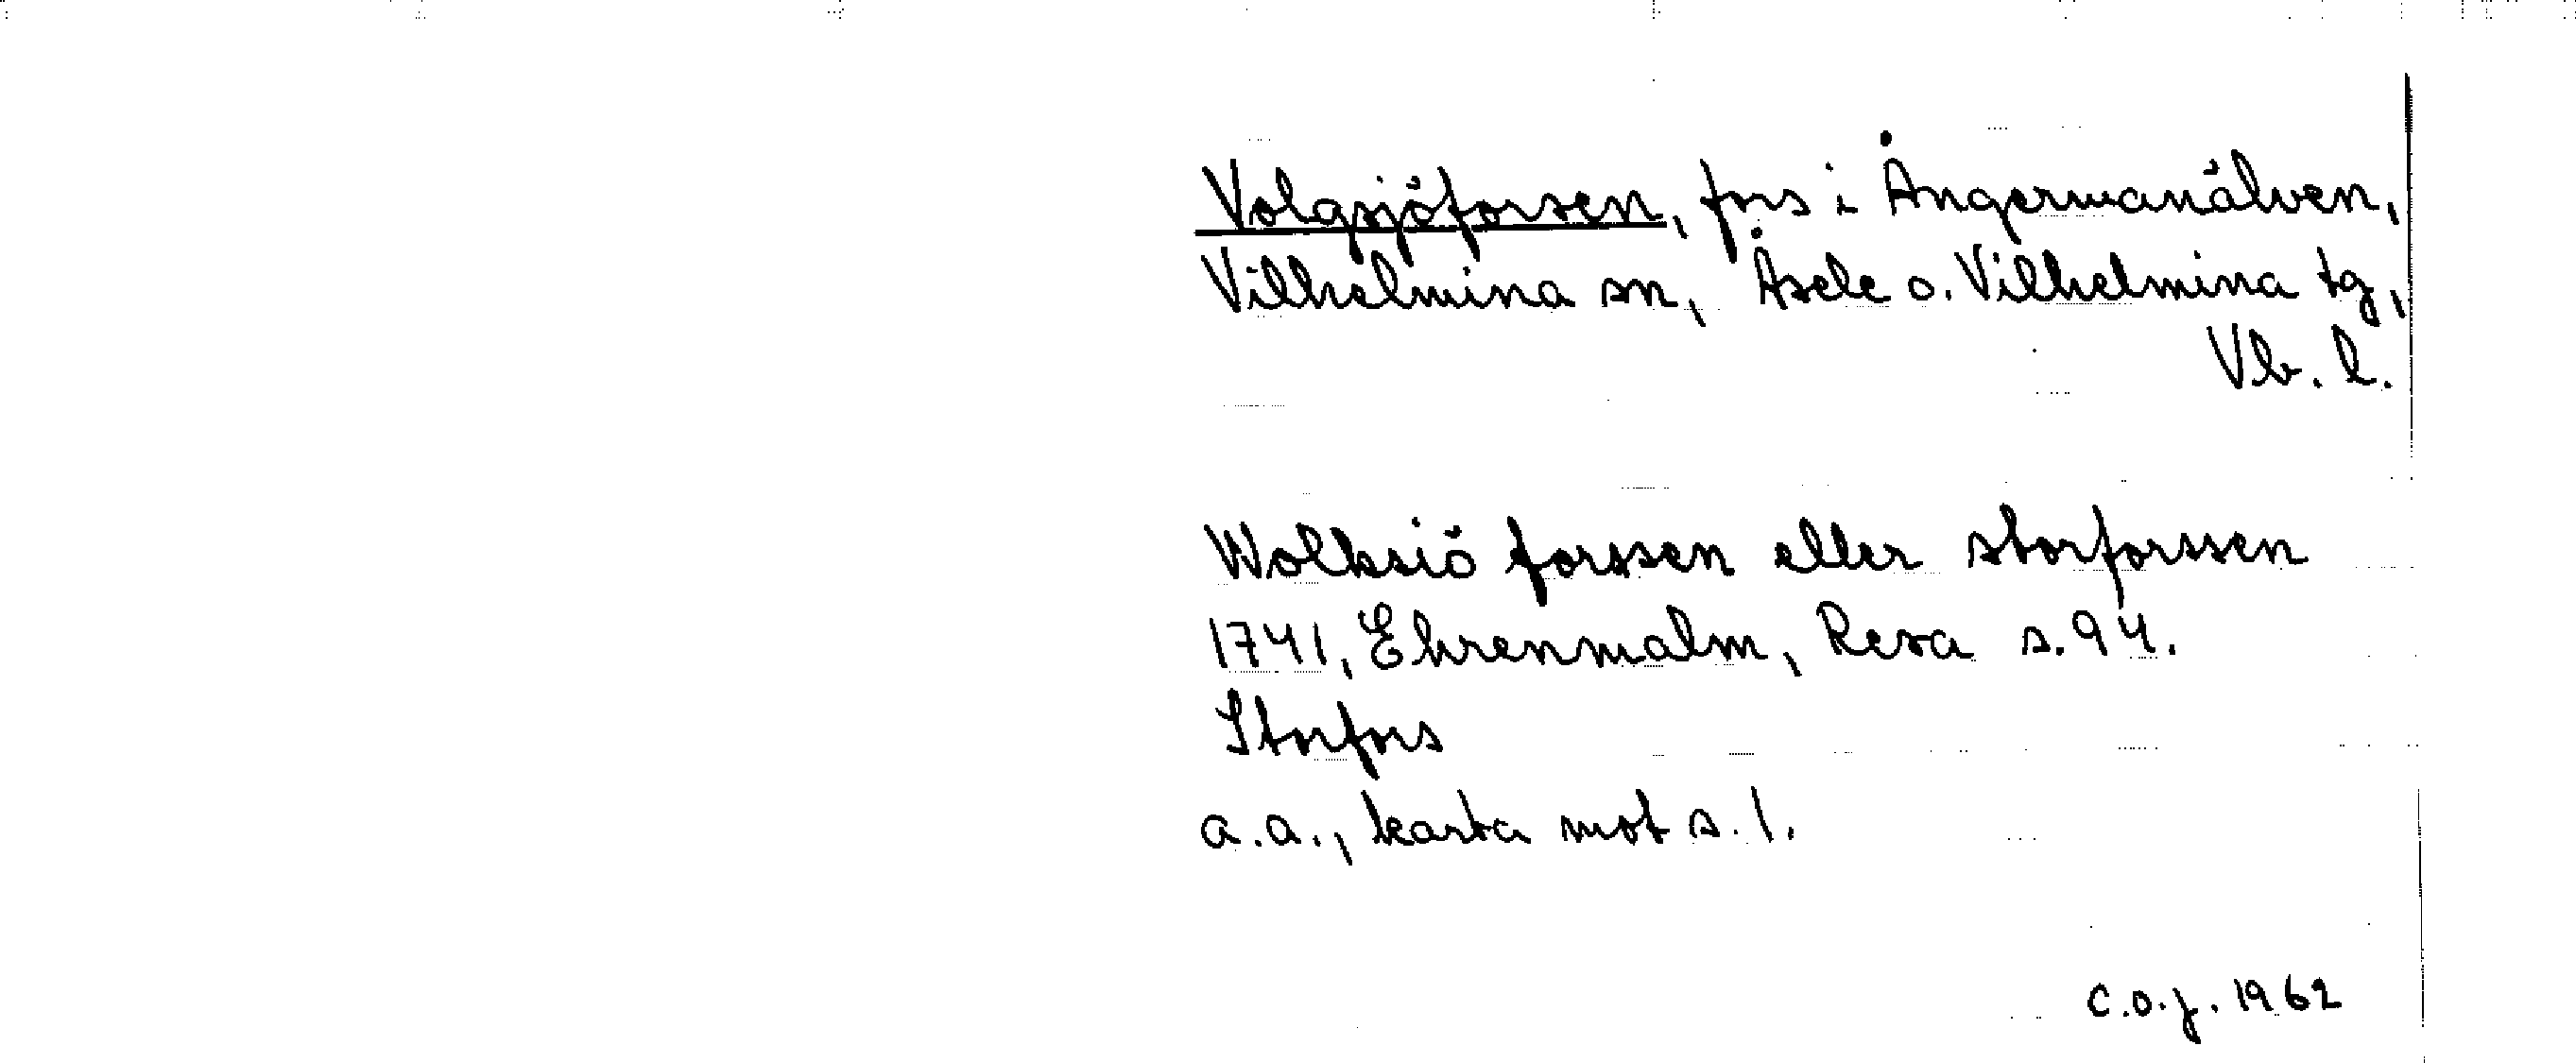 Volgsjöforsen, fors i Ångermanälven,
Vilhelmina sn, Åsele o. Vilhelmina tg,
Vb. l.
Wolksiö forssen eller storforssen
1741, Ehrenmalm, Resa s. 94.
Storfors
a.a., karta mot s. 1.
C.O.J. 1962